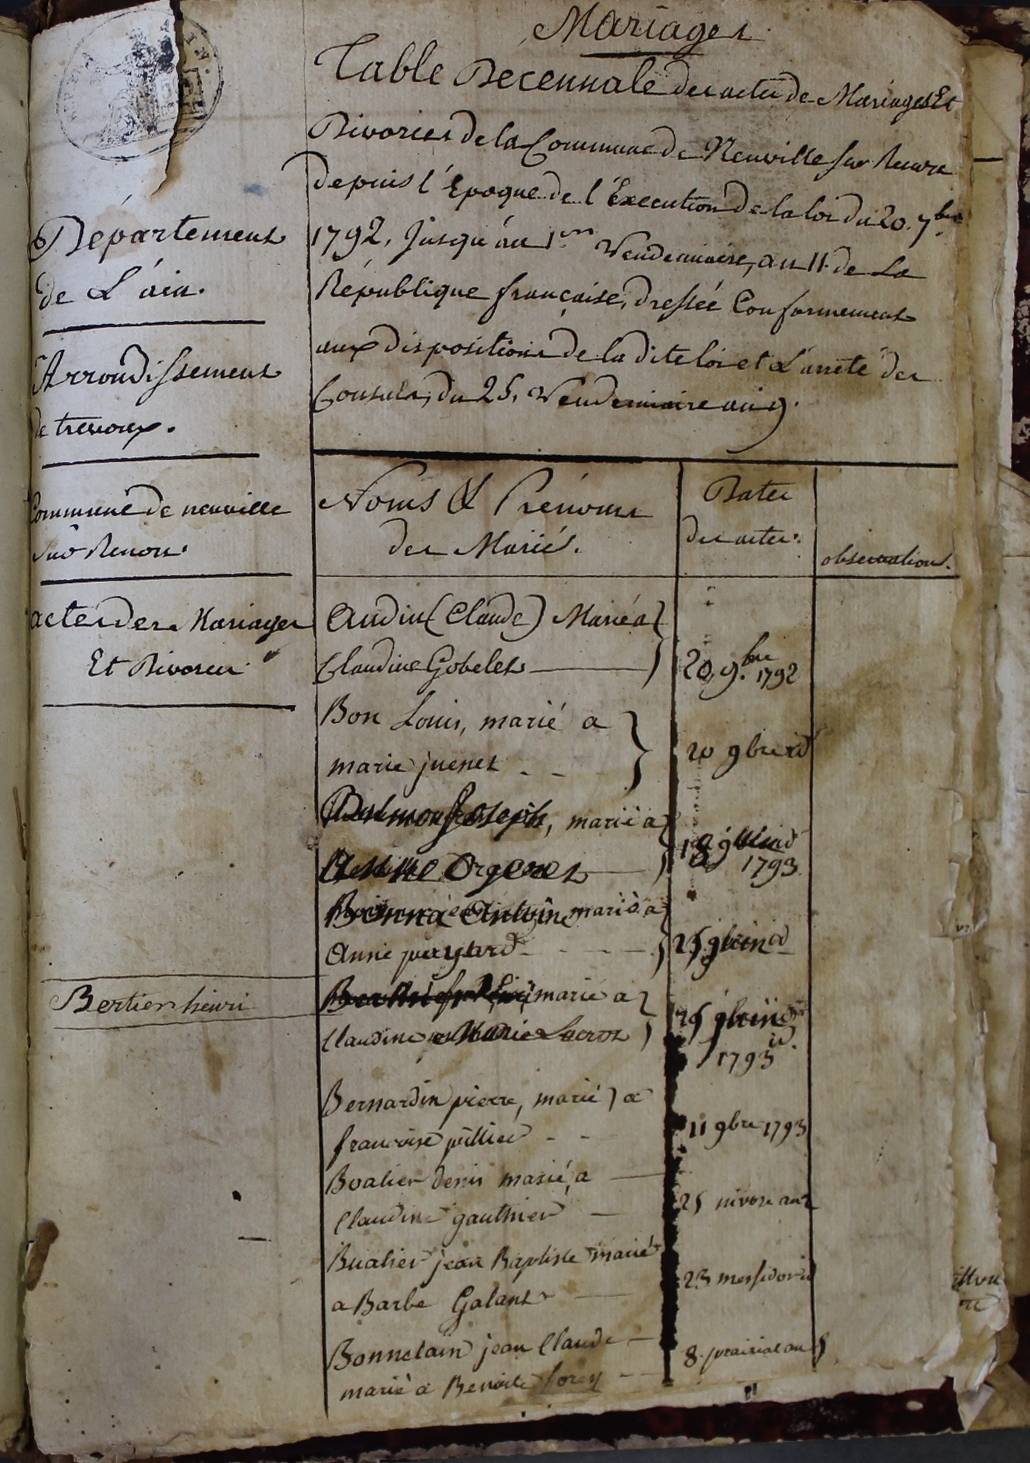 Mariages
Table Décennale des actes de Mariages Et
Divorces de la Commune de Neuville sur Renon
depuis l'Epoque de l'Execution de la loi du 20. 7bre
1792, Jusqu'au 1er Vendemiaire, an 11. de La
République française, dressée Conformement
aux dispositions de la dite loi et L'arreté des
Consuls, du 25, Vendemiaire an 9.
Département
de L'ain.
Arrondissement
de trevoux.
Commune de neuville
sur Renon.
actes des Mariages
Et Divorces
Noms & Prénoms
des Mariés.
Dates
des actes.
observations.
Audin (Claude) Marié a
Claudine Gobelet
20. 9.bre 1792
Bon Louis, marié a
marie juenet
20 9bre id
Joseph, marié a
18 9bre id
1793
Antoine marié a
Anne
25 9bre id
Bertier henri
marié a
Claudine Marie Lacroz
25 9bre id
1793
Bernardin pierre, marié a
francoise pillied
11 9bre 1793
Boalier denis marié, a
Claudine gauthier
25 nivose an 2
Bualier jean Baptiste marié
a Barbe Galant
23 messidor id
Bonnetain jean Claude
marié a Benoite forey
8 prairial an 5